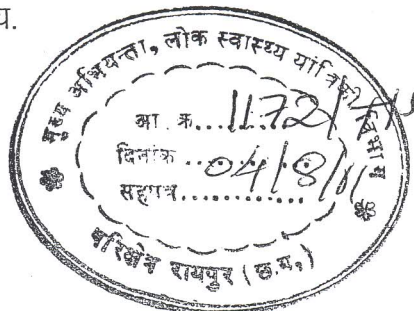 य.
मुख्य अभियन्ता, लोक स्वास्थ्य यांत्रिकी विभाग
आ. क्र....11721
दिनांक....04/8/11
सहपत्र............
परिक्षेत्र रायपुर (छ.ग.)